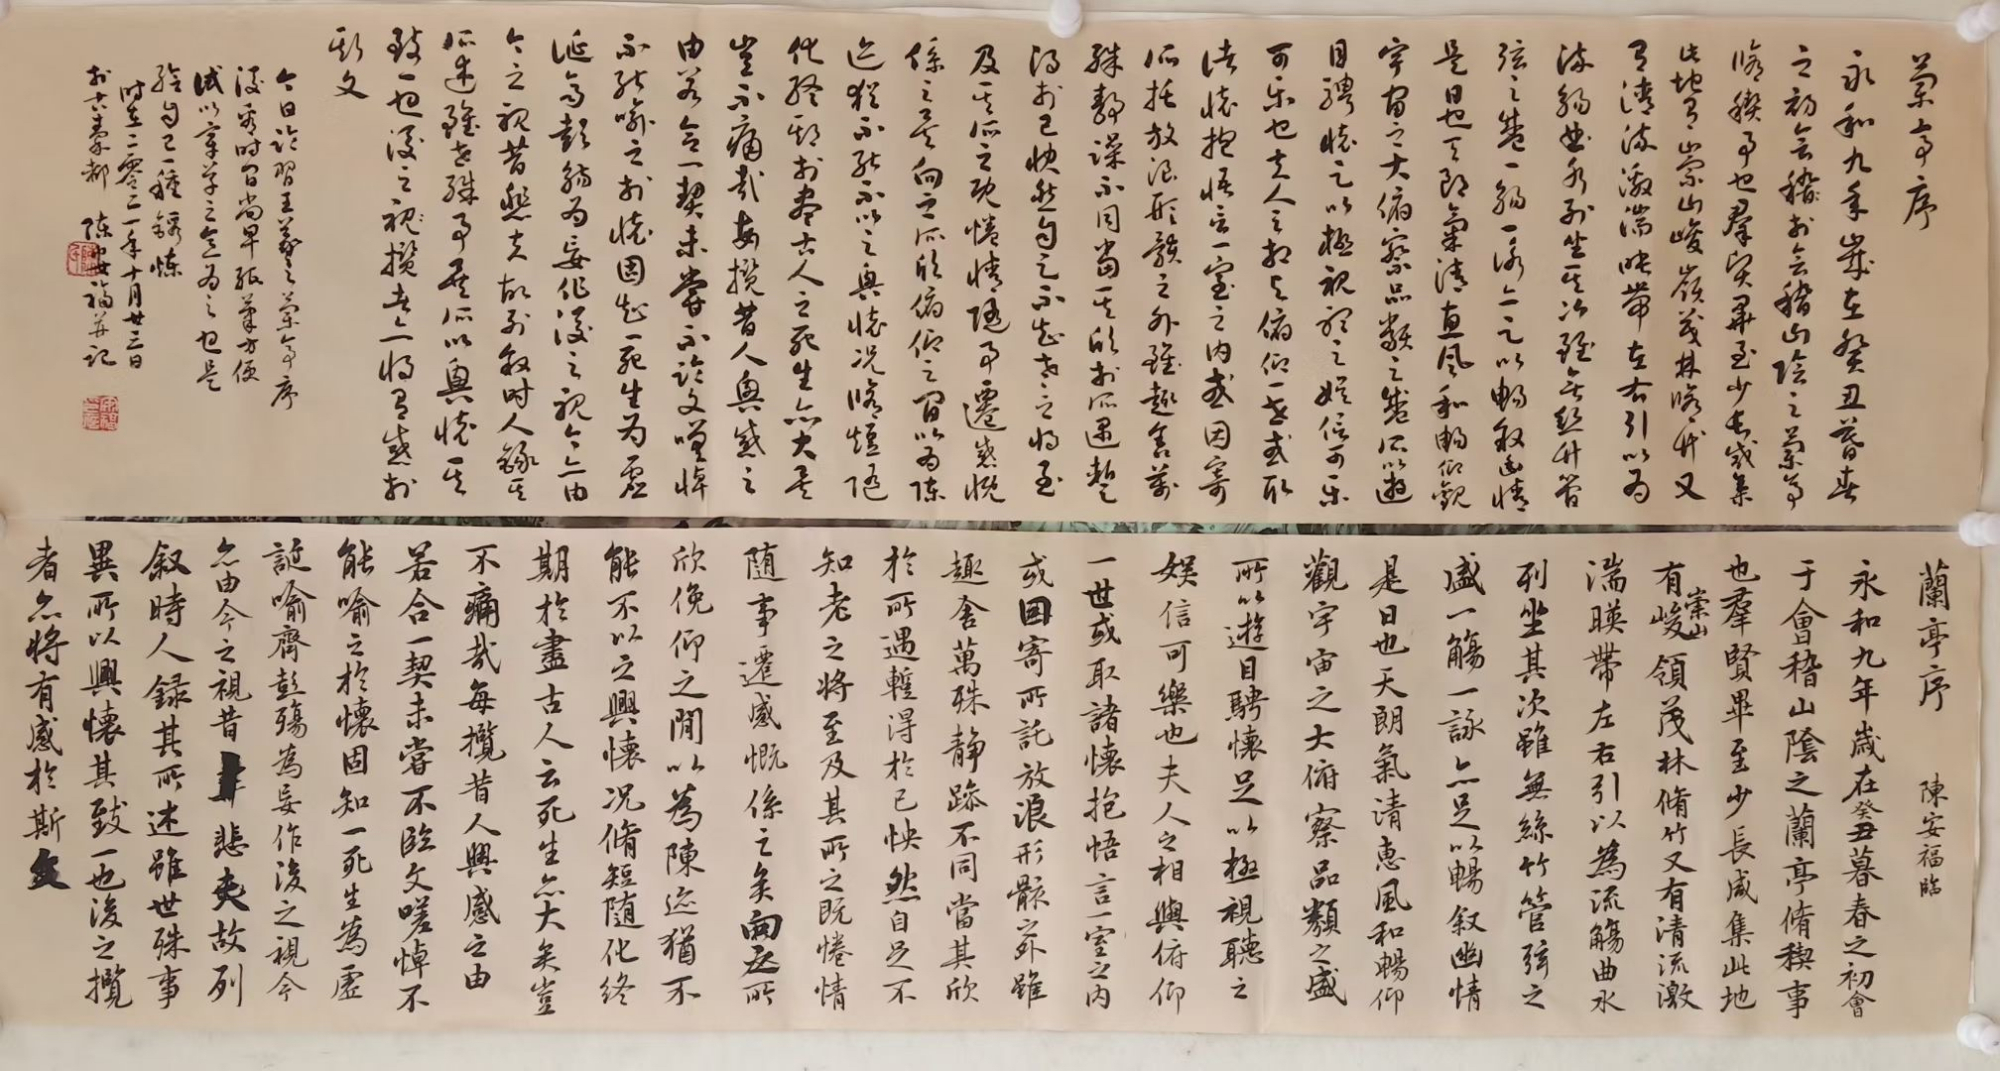 蘭亭序
永和九年歲在癸丑暮春
之初會稽於會稽山陰之蘭亭
脩稧事也羣賢畢至少長咸集
此地有崇山峻嶺茂林脩竹又
有清流激湍映帶左右引以為
流觴曲水列坐其次雖無絲竹管
弦之盛一觴一詠亦足以暢叙幽情
是日也天朗氣清惠風和暢仰觀
宇宙之大俯察品類之盛所以遊
目騁懷足以極視聽之娛信可樂
可樂也夫人之相與俯仰一世或取
諸懷抱悟言一室之内或因寄
所托放浪形骸之外雖趣舍萬
殊靜躁不同當其欣於所遇暫
得於己快然自足不知老之將至
及其所之既惓情隨事遷感慨
係之矣向之所欣俯仰之間以為陳
迹猶不能不以之興懷況脩短隨
化終期於盡古人云死生亦大矣
豈不痛哉每攬昔人興感之
由若合一契未嘗不臨文嗟悼
不能喻之於懷固知一死生為虛
誕齊彭殤為妄作後之視今亦由
今之視昔悲夫故列叙時人錄其
所述雖世殊事異所以興懷其
致一也後之視攬者亦將有感於
斯文
今日臨習王羲之蘭亭序
後看時間尚早紙筆方便
試以章草之意為之也是
給自己一種鍛煉
時在二零二一年十月廿三日
於古 都 陳安福並記
蘭亭序 陳安福臨
永和九年歲在癸丑暮春之初會
于會稽山陰之蘭亭脩稧事
也羣賢畢至少長咸集此地
有崇山峻領茂林脩竹又有清流激
湍暎帶左右引以為流觴曲水
列坐其次雖無絲竹管弦之
盛一觴一詠亦足以暢叙幽情
是日也天朗氣清惠風和暢仰
觀宇宙之大俯察品類之盛
所以遊目騁懷足以極視聽之
娛信可樂也夫人之相與俯仰
一世或取諸懷抱悟言一室之内
或因寄所託放浪形骸之外雖
趣舍萬殊靜躁不同當其欣
於所遇暫得於己怏然自足不
知老之將至及其所之既惓情
隨事遷感慨係之矣向之所
欣俛仰之閒以為陳迹猶不
能不以之興懷況脩短隨化終
期於盡古人云死生亦大矣豈
不痛哉每攬昔人興感之由
若合一契未嘗不臨文嗟悼不
能喻之於懷固知一死生為虛
誕喻齊彭殤為妄作後之視今
亦由今之視昔悲夫故列
叙時人錄其所述雖世殊事
異所以興懷其致一也後之攬
者亦將有感於斯文